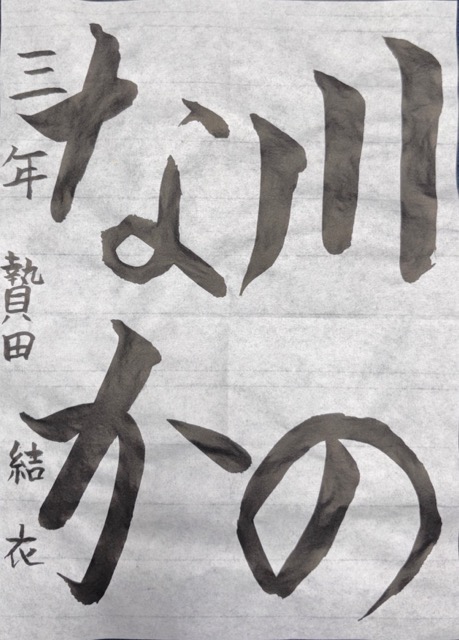 川の
なか
三年 贄田結衣